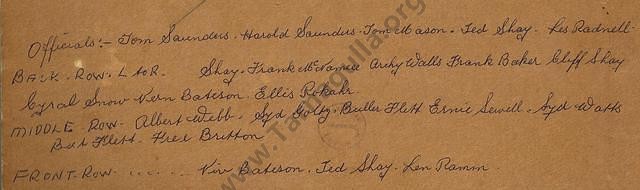 Officials:- Tom Saunders. Harold Saunders. Tom Mason. Ted Shay. Les Radnell.
BACK. ROW. L to R. Shay. Frank McNamee Archy Walls Frank Baker Cliff Shay
Cyral Snow Vern Bateson. Ellis Rokahr.
MIDDLE. ROW. Albert Webb. Syd Goltz. Butler Flett Ernie Sewell. Syd Watts
Bat Flett. Free Britton
FRONT. ROW. ...... Viv Bateson. Ted Shay. Len Ramm
www.Tambrgulla.org